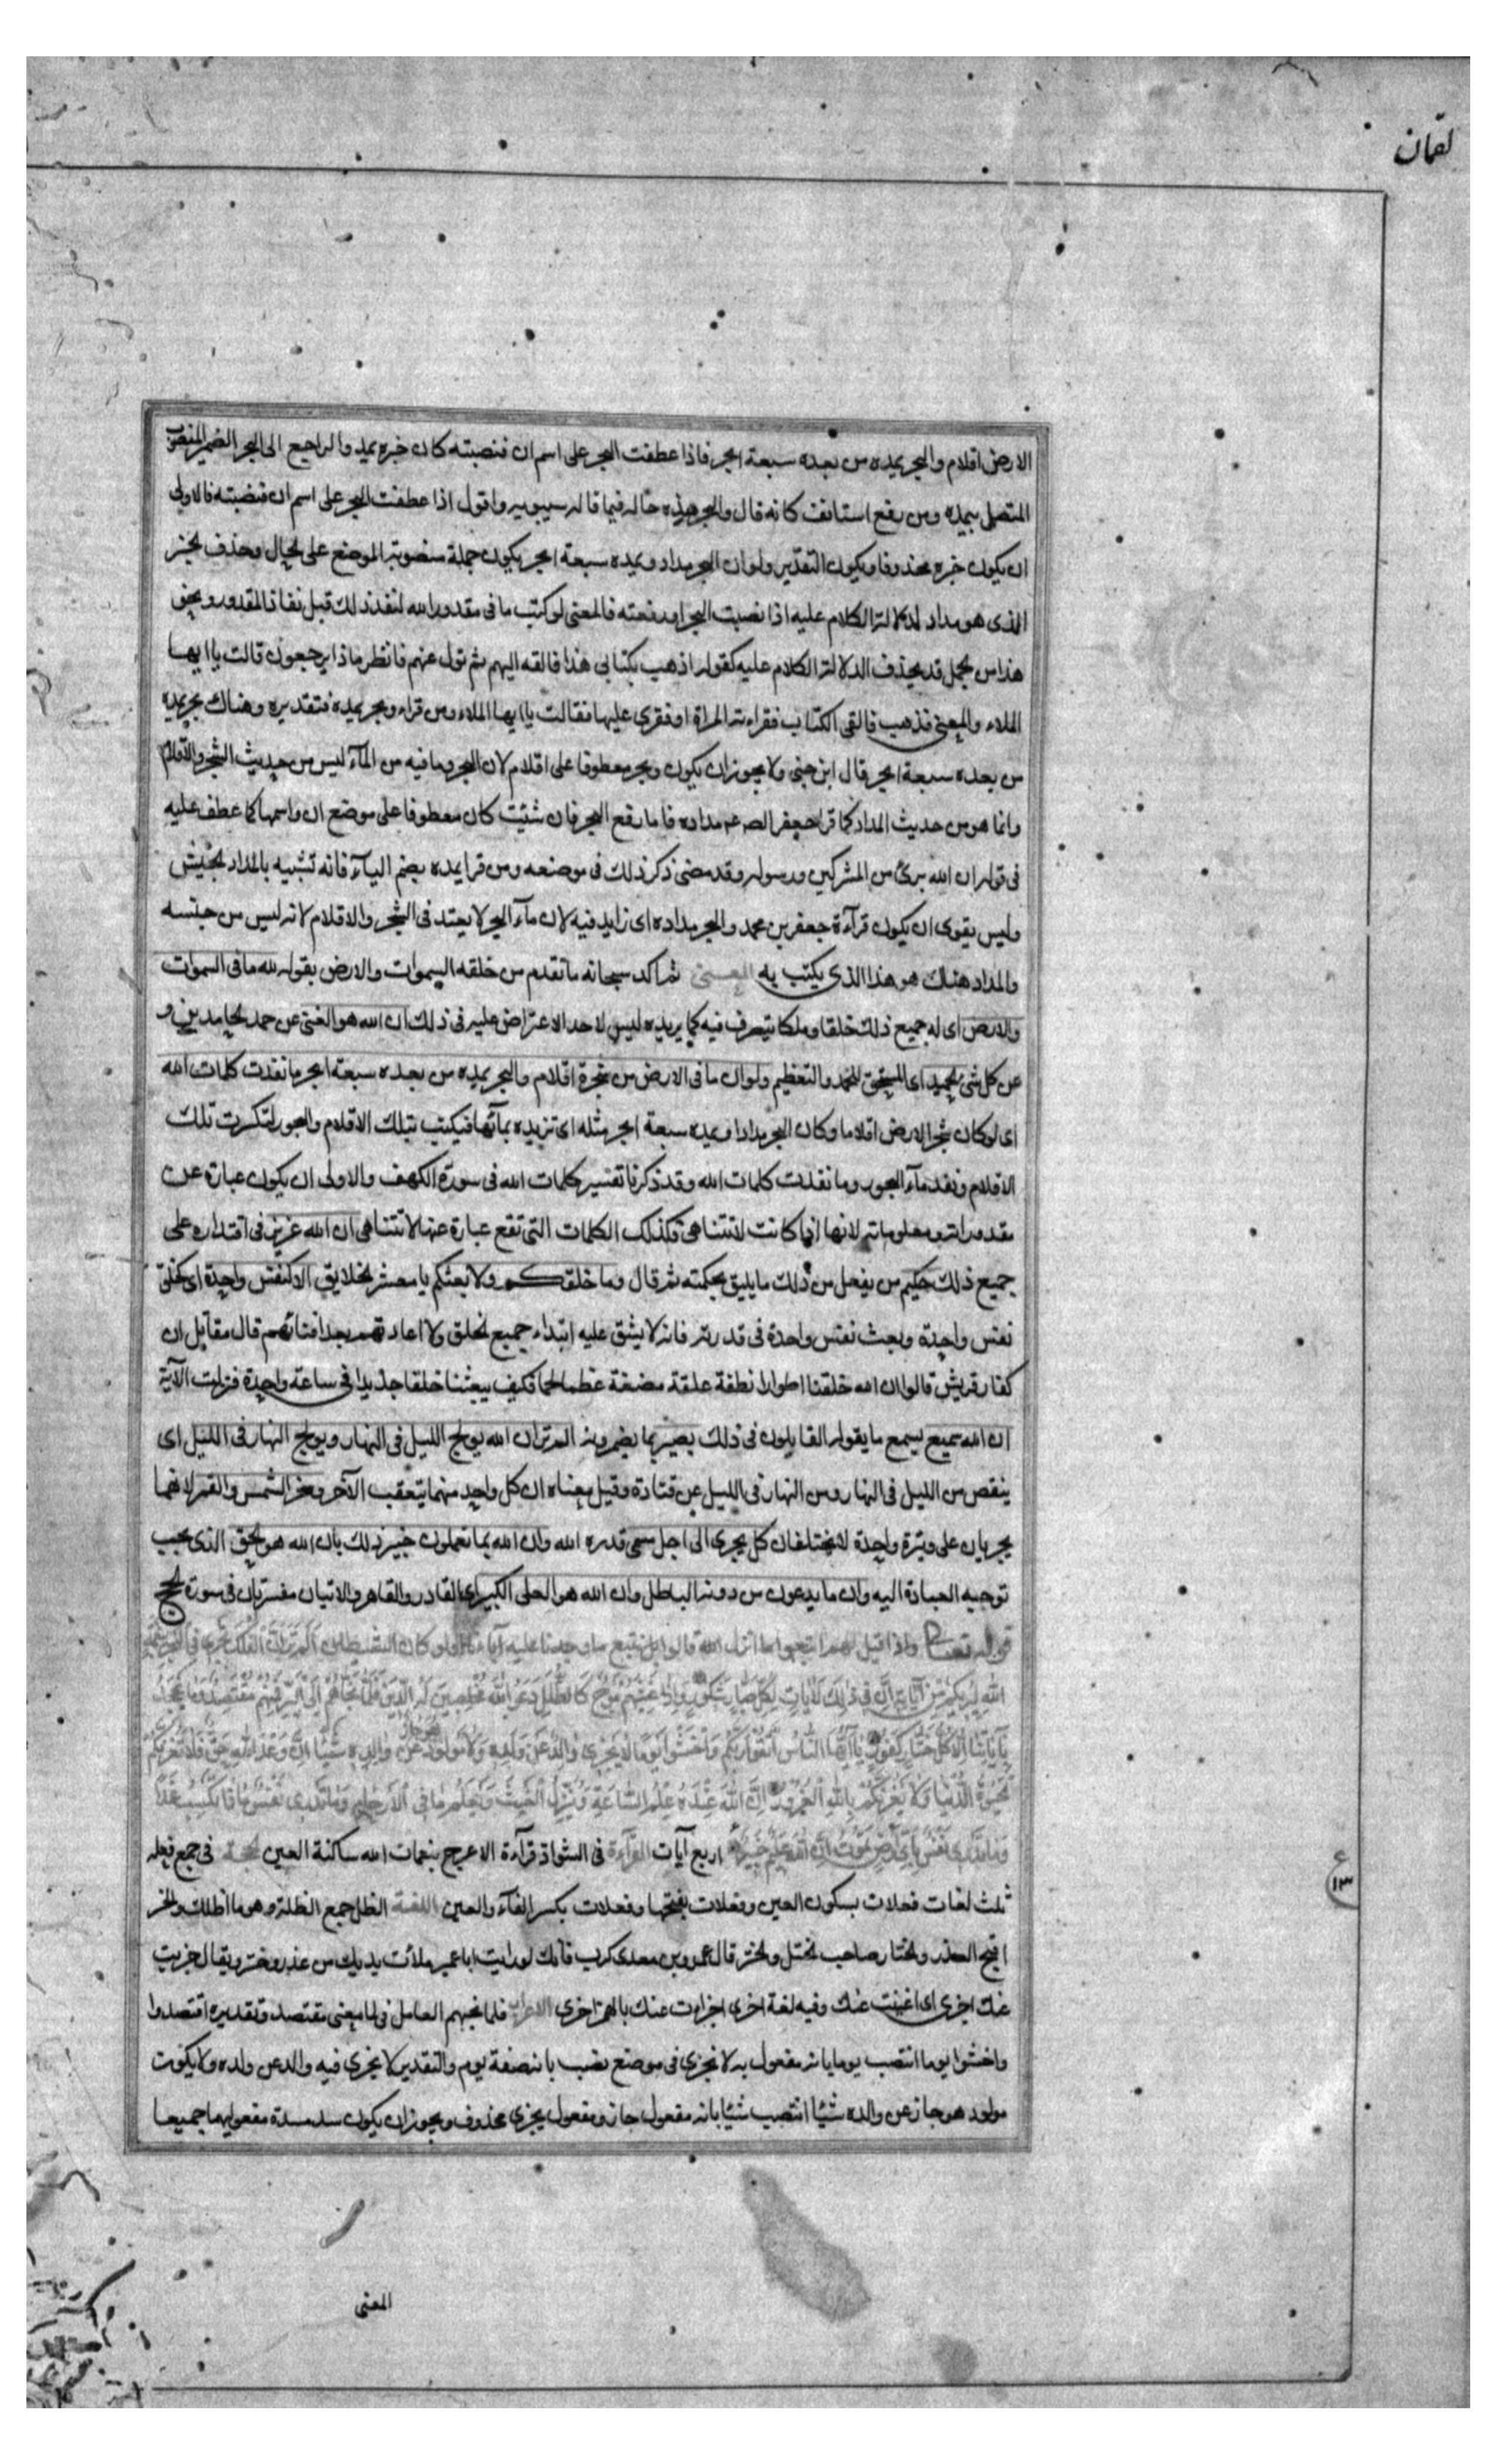 لقمان
الارض اقلام والبحر يمده من بعده سبعة ابحر فاذا عطفت البحر على اسم ان فنصبته كان خبره يمده والراجع الى البحر الضمير المنصوب
المتصل بيمده ومن رفع استانف كانه قال والبحر هذه حاله فيما قاله سيبويه واقول اذا عطفت البحر على اسم ان فنصبته فالاولى
ان يكون خبره محذوفا ويكون التقدير ولو ان البحر مداد ويمده سبعة ابحر يكون جملة منصوبة الموضع على الحال وحذف الخبر
الذى هو مداد لدلالة الكلام عليه اذا نصبت البحر او رفعته فالمعنى لو كتب ما فى مقدور الله لنفذ ذلك قبل نفاذ المقدور ونحو
هذا من الجمل قد يحذف لدلالة الكلام عليه كقوله اذهب بكتابى هذا فالقه اليهم ثم تول عنهم فانظر ماذا يرجعون قالت يا ايها
الملاء والمعنى فذهب فالقى الكتاب فقراءته المراة او فقرى عليها فقالت يا ايها الملاء ومن قراء وبحر يمده فتقديره وهناك بحر يمده
من بعده سبعة ابحر قال ابن جنى ولا يجوز ان يكون وبحر معطوفا على اقلام لان البحر وما فيه من المآء ليس من حديث الشجر والاقلام
وانما هو من حديث المداد كما قرا جعفر الصـ عم مداده فاما رفع البحر فان شئت كان معطوفا على موضع ان واسمها كما عطف عليه
فى قوله ان الله برئ من المشركين ورسوله وقد مضى ذكر ذلك فى موضعه ومن قرا يمده بضم اليآء فانه تشبيه بامداد الجيش
وليس يقوى ان يكون قرآءة جعفر بن محمد والبحر مداده اى زايد فيه لان مآء البحر لا يعتد فى الشجر والاقلام لانه ليس من جنسه
والمداد هناك هو هذا الذى يكتب به المعنى ثم اكد سبحانه ما تقدم من خلقه السموات والارض بقوله لله ما فى السموات
والارض اى له جميع ذلك خلقا وملكا يتصرف فيه كما يريده ليس لاحد الاعتراض عليه فى ذلك ان الله هو الغنى عن حمد الحامدين و
عن كل شئ الحميد اى المستحق للحمد والتعظيم ولو ان ما فى الارض من شجرة اقلام والبحر يمده من بعده سبعة ابحر ما نفدت كلمات الله
اى لو كان شجر الارض اقلاما وكان البحر مدادا ويمده سبعة ابحر مثله اى تزيده بمآئها فيكتب بتلك الاقلام والبحور لتكسرت تلك
الاقلام ونفد مآء البحور وما نفدت كلمات الله وقد ذكرنا تفسير كلمات الله فى سورة الكهف والاولى ان يكون عبارة عن
مقدوراته ومعلوماته لانها اذا كانت لا تتناهى فكذلك الكلمات التى تقع عبارة عنها لا تتناهى ان الله عزيز فى اقتداره على
جميع ذلك حكيم من يفعل من ذلك ما يليق بحكمته ثم قال وما خلقكم ولا بعثكم يا معشر الخلايق الا كنفس واحدة اى كخلق
نفس واحدة وبعث نفس واحدة فى قدرته فانه لا يشق عليه ابتداء جميع الخلق ولا اعادتهم بعد افنائهم قال مقاتل ان
كفار قريش قالوا ان الله خلقنا اطوارا نطفة علقة مضغة عظما لحما فكيف يبعثنا خلقا جديدا فى ساعة واحدة فنزلت الآية
ان الله سميع يسمع ما يقوله القايلون فى ذلك بصير بما يضمرونه الم تر ان الله يولج الليل فى النهار ويولج النهار فى الليل اى
ينقص من الليل فى النهار ومن النهار فى الليل عن قتادة وقيل معناه ان كل واحد منهما يتعقب الآخر وسخر الشمس والقمر لانهما
يجريان على وتيرة واحدة لا يختلفان كل يجرى الى اجل مسمى قدره الله وان الله بما تعملون خبير ذلك بان الله هو الحق الذى يجب
توجيه العبادة اليه وان ما يدعون من دونه الباطل وان الله هو العلى الكبير اى القادر والقاهر والايتان مفسرتان فى سورة الحج
قوله تعالى واذا قيل لهم اتبعوا ما انزل الله قالوا بل نتبع ما وجدنا عليه آباءنا اولو كان الشيطان اَلَمْ تَرَ اَنَّ الْفُلْكَ تَجْرِى فِى الْبَحْرِ بِنِعْمَتِ
اللهِ لِيُرِيَكُمْ مِنْ آيَاتِهِ اِنَّ فِى ذٰلِكَ لَآيَاتٍ لِكُلِّ صَبَّارٍ شَكُورٍ وَاِذَا غَشِيَهُمْ مَوْجٌ كَالظُّلَلِ دَعَوُا اللهَ مُخْلِصِينَ لَهُ الدِّينَ فَلَمَّا نَجَّاهُمْ اِلَى الْبَرِّ فَمِنْهُمْ مُقْتَصِدٌ وَمَا يَجْحَدُ
بِآيَاتِنَا اِلَّا كُلُّ خَتَّارٍ كَفُورٍ يَا اَيُّهَا النَّاسُ اتَّقُوا رَبَّكُمْ وَاخْشَوْا يَوْمًا لَا يَجْزِى وَالِدٌ عَنْ وَلَدِهِ وَلَا مَوْلُودٌ هُوَ جَازٍ عَنْ وَالِدِهِ شَيْئًا اِنَّ وَعْدَ اللهِ حَقٌّ فَلَا تَغُرَّنَّكُمُ
الْحَيٰوةُ الدُّنْيَا وَلَا يَغُرَّنَّكُمْ بِاللهِ الْغَرُورُ اِنَّ اللهَ عِنْدَهُ عِلْمُ السَّاعَةِ وَيُنَزِّلُ الْغَيْثَ وَيَعْلَمُ مَا فِى الْاَرْحَامِ وَمَا تَدْرِى نَفْسٌ مَاذَا تَكْسِبُ غَدًا
وَمَا تَدْرِى نَفْسٌ بِاَىِّ اَرْضٍ تَمُوتُ اِنَّ اللهَ عَلِيمٌ خَبِيرٌ اربع آيات القرآءة فى الشواذ قرآءة الاعرج بنعمات الله ساكنة العين الحجة فى جمع فعلة
ثلث لغات فعلات بسكون العين وفعلات بفتحها وفعلات بكسر الفآء والعين اللغة الظلل جمع الظلة وهو ما اظلك والختر
اقبح الغدر والختار صاحب الختل والختر قال عمرو بن معدى كرب فانك لو رايت ابا عمير ملأت يديك من غدر وختر ويقال جزيت
عنك اجزى اى اغنيت عنك وفيه لغة اخرى اجزات عنك بالهمز اجزى الاعراب فلما نجيهم العامل فى لما معنى مقتصد وتقديره اقتصدوا
واخشوا يوما انتصب يوما بانه مفعول به لا تجزى فى موضع نصب بانه صفة يوم والتقدير لا يجزى فيه والد عن ولده ولا يكون
مولود هو جاز عن والده شيئا انتصب شيئا بانه مفعول جاز ومفعول يجزى محذوف ويجوز ان يكون سد مسدة مفعوليهما جميعا
ع ١٣
المعنى